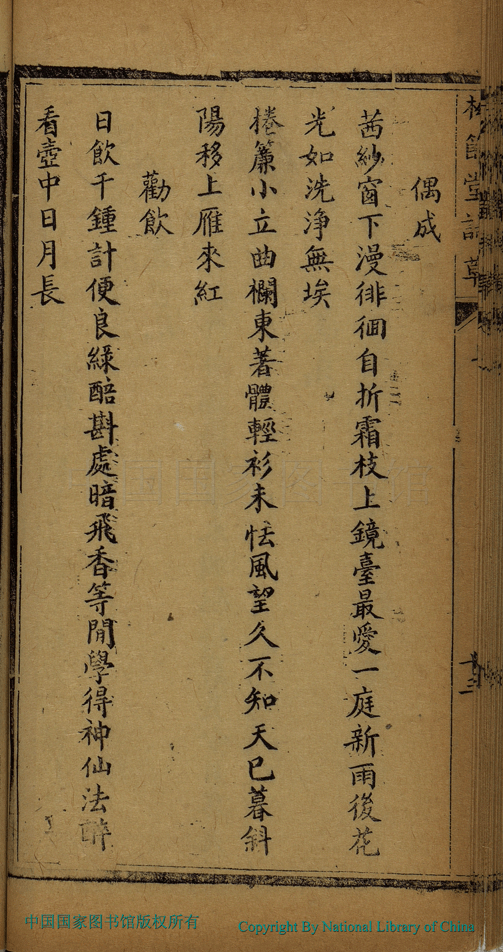 偶成
茜紗窗下漫徘徊自折霜枝上鏡臺最愛一庭新雨後花
光如洗浄無埃
捲簾小立曲欄東著體輕衫未怯風望久不知天已暮斜
陽移上雁來紅
勸飲
日飲千鍾計便良綠醅斟處暗飛香等閒學得神仙法醉
看壺中日月長
中国国家图书馆版权所有
Copyright By National Library of China